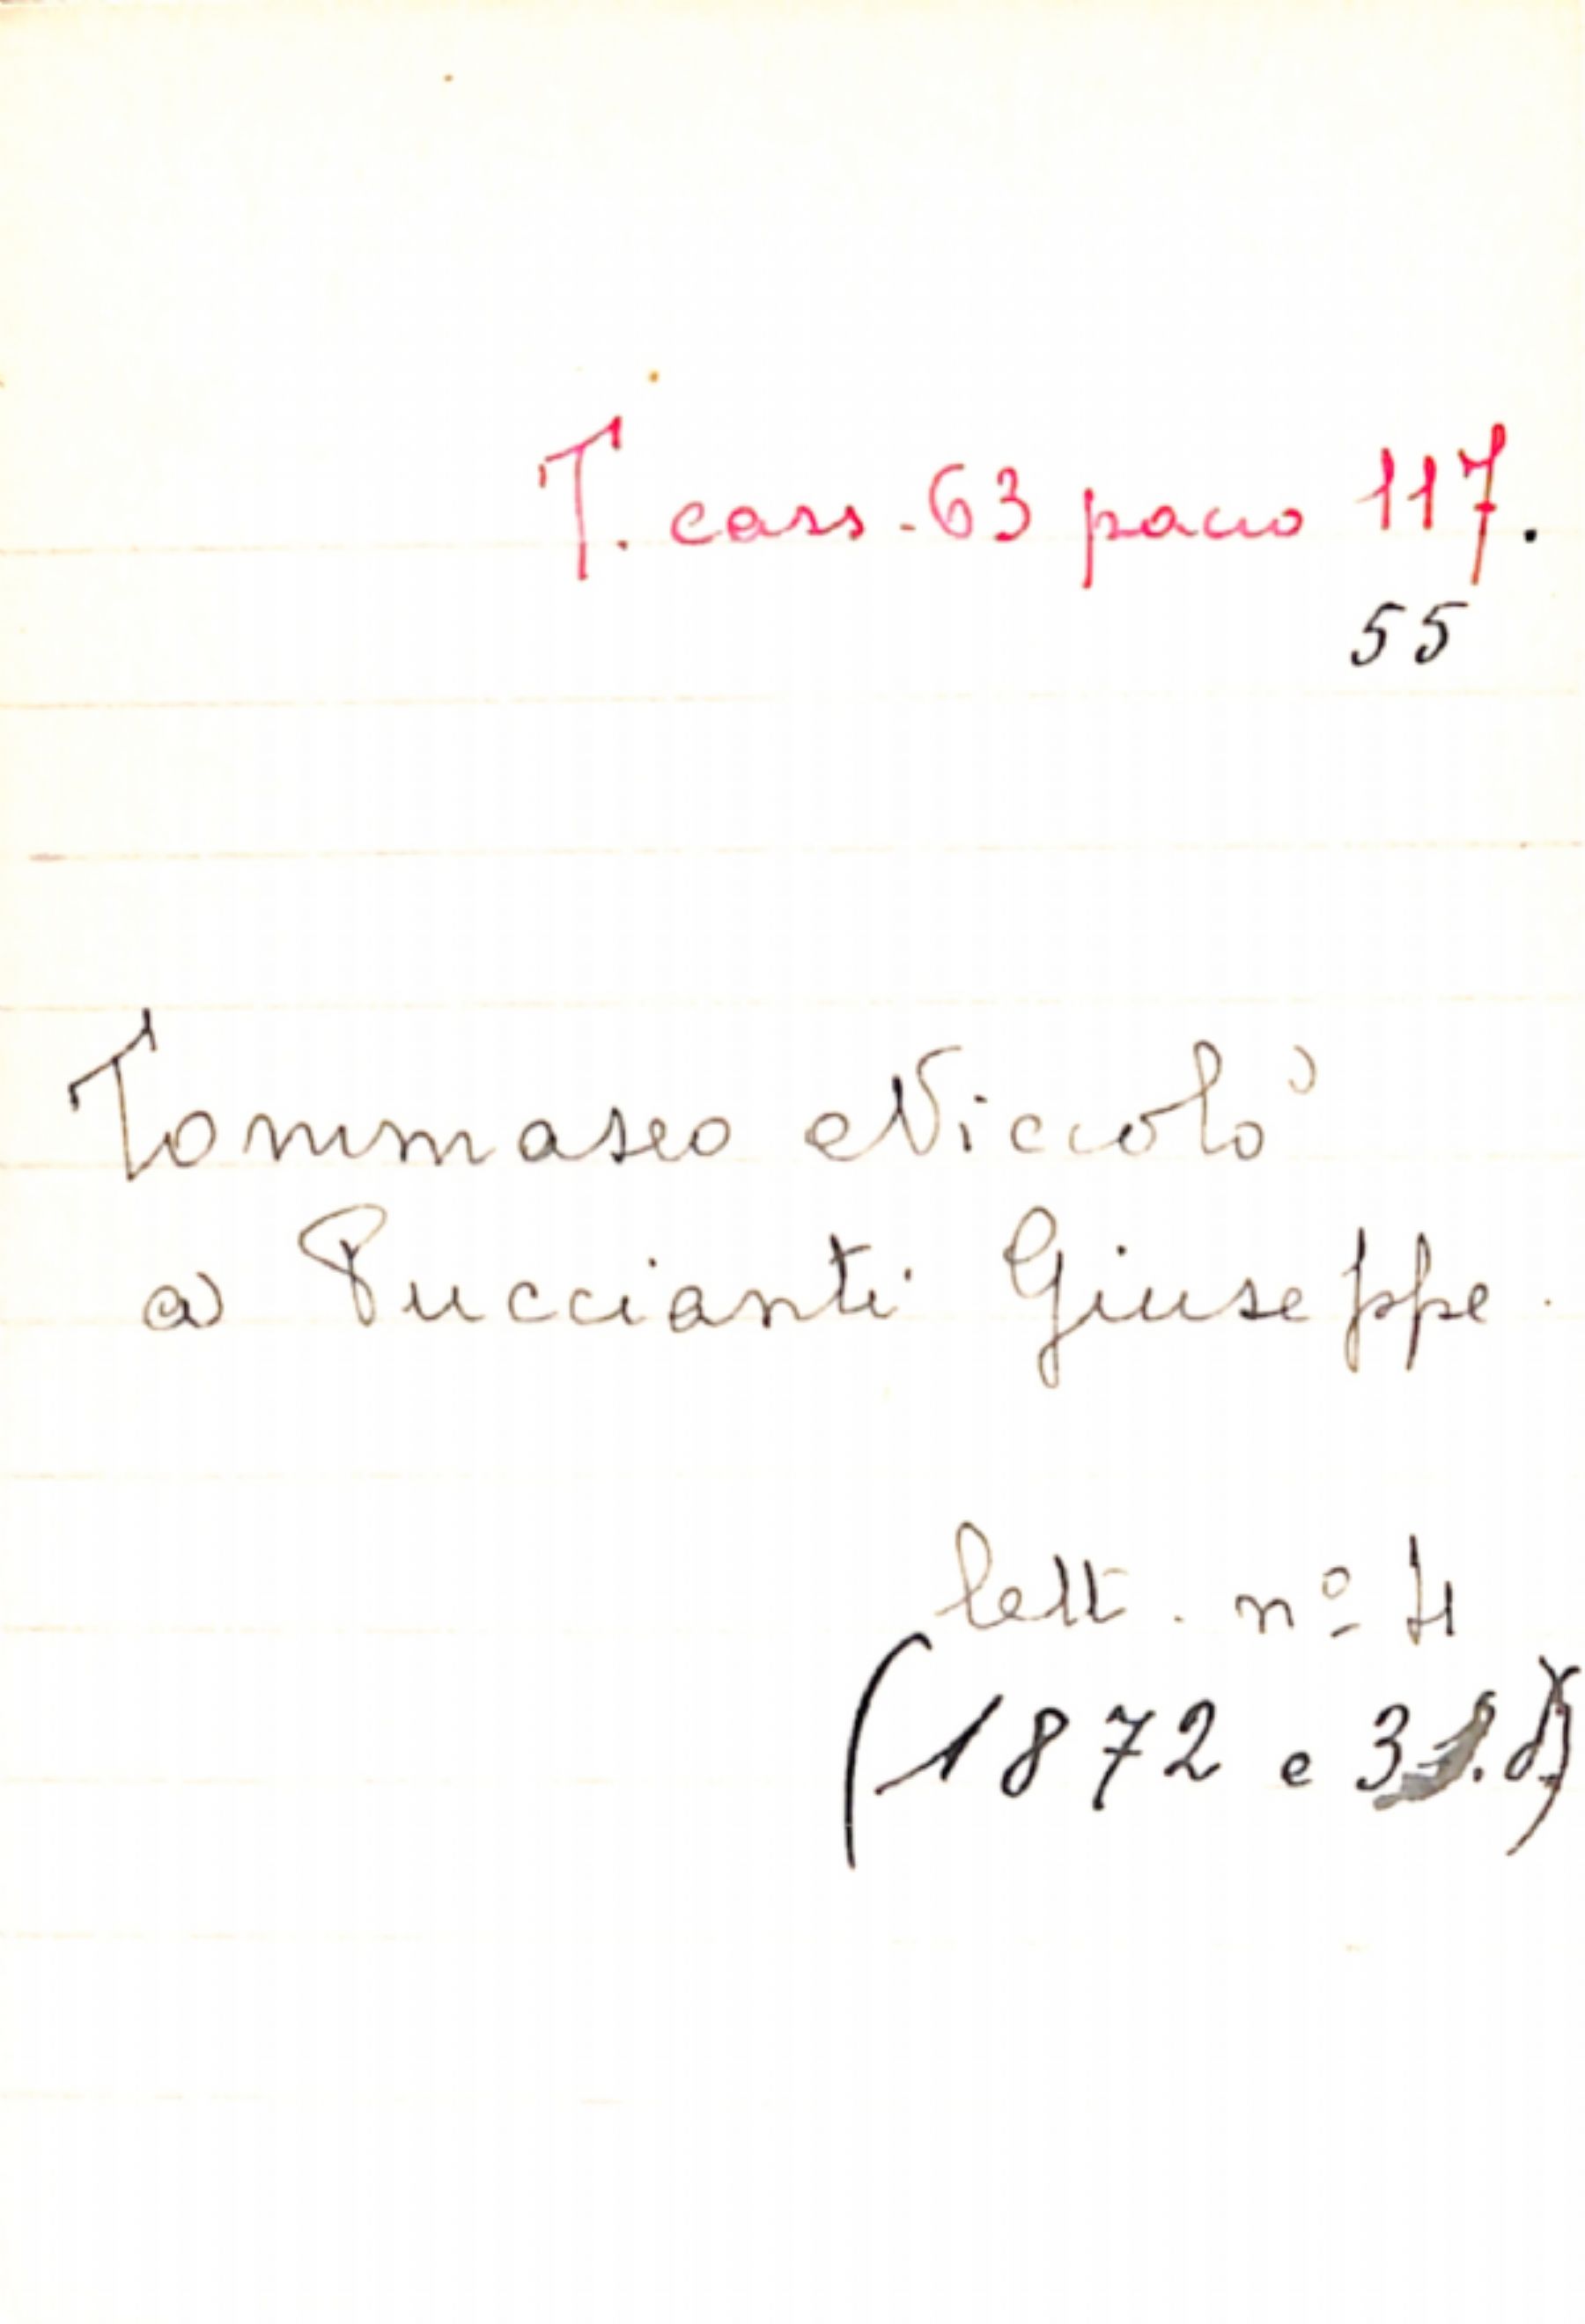 T. cass. 63 pacco 117.
55
Tommaseo Niccolò
a Puccianti Giuseppe.
lett. nº 4
(1872 e 3 s.d)